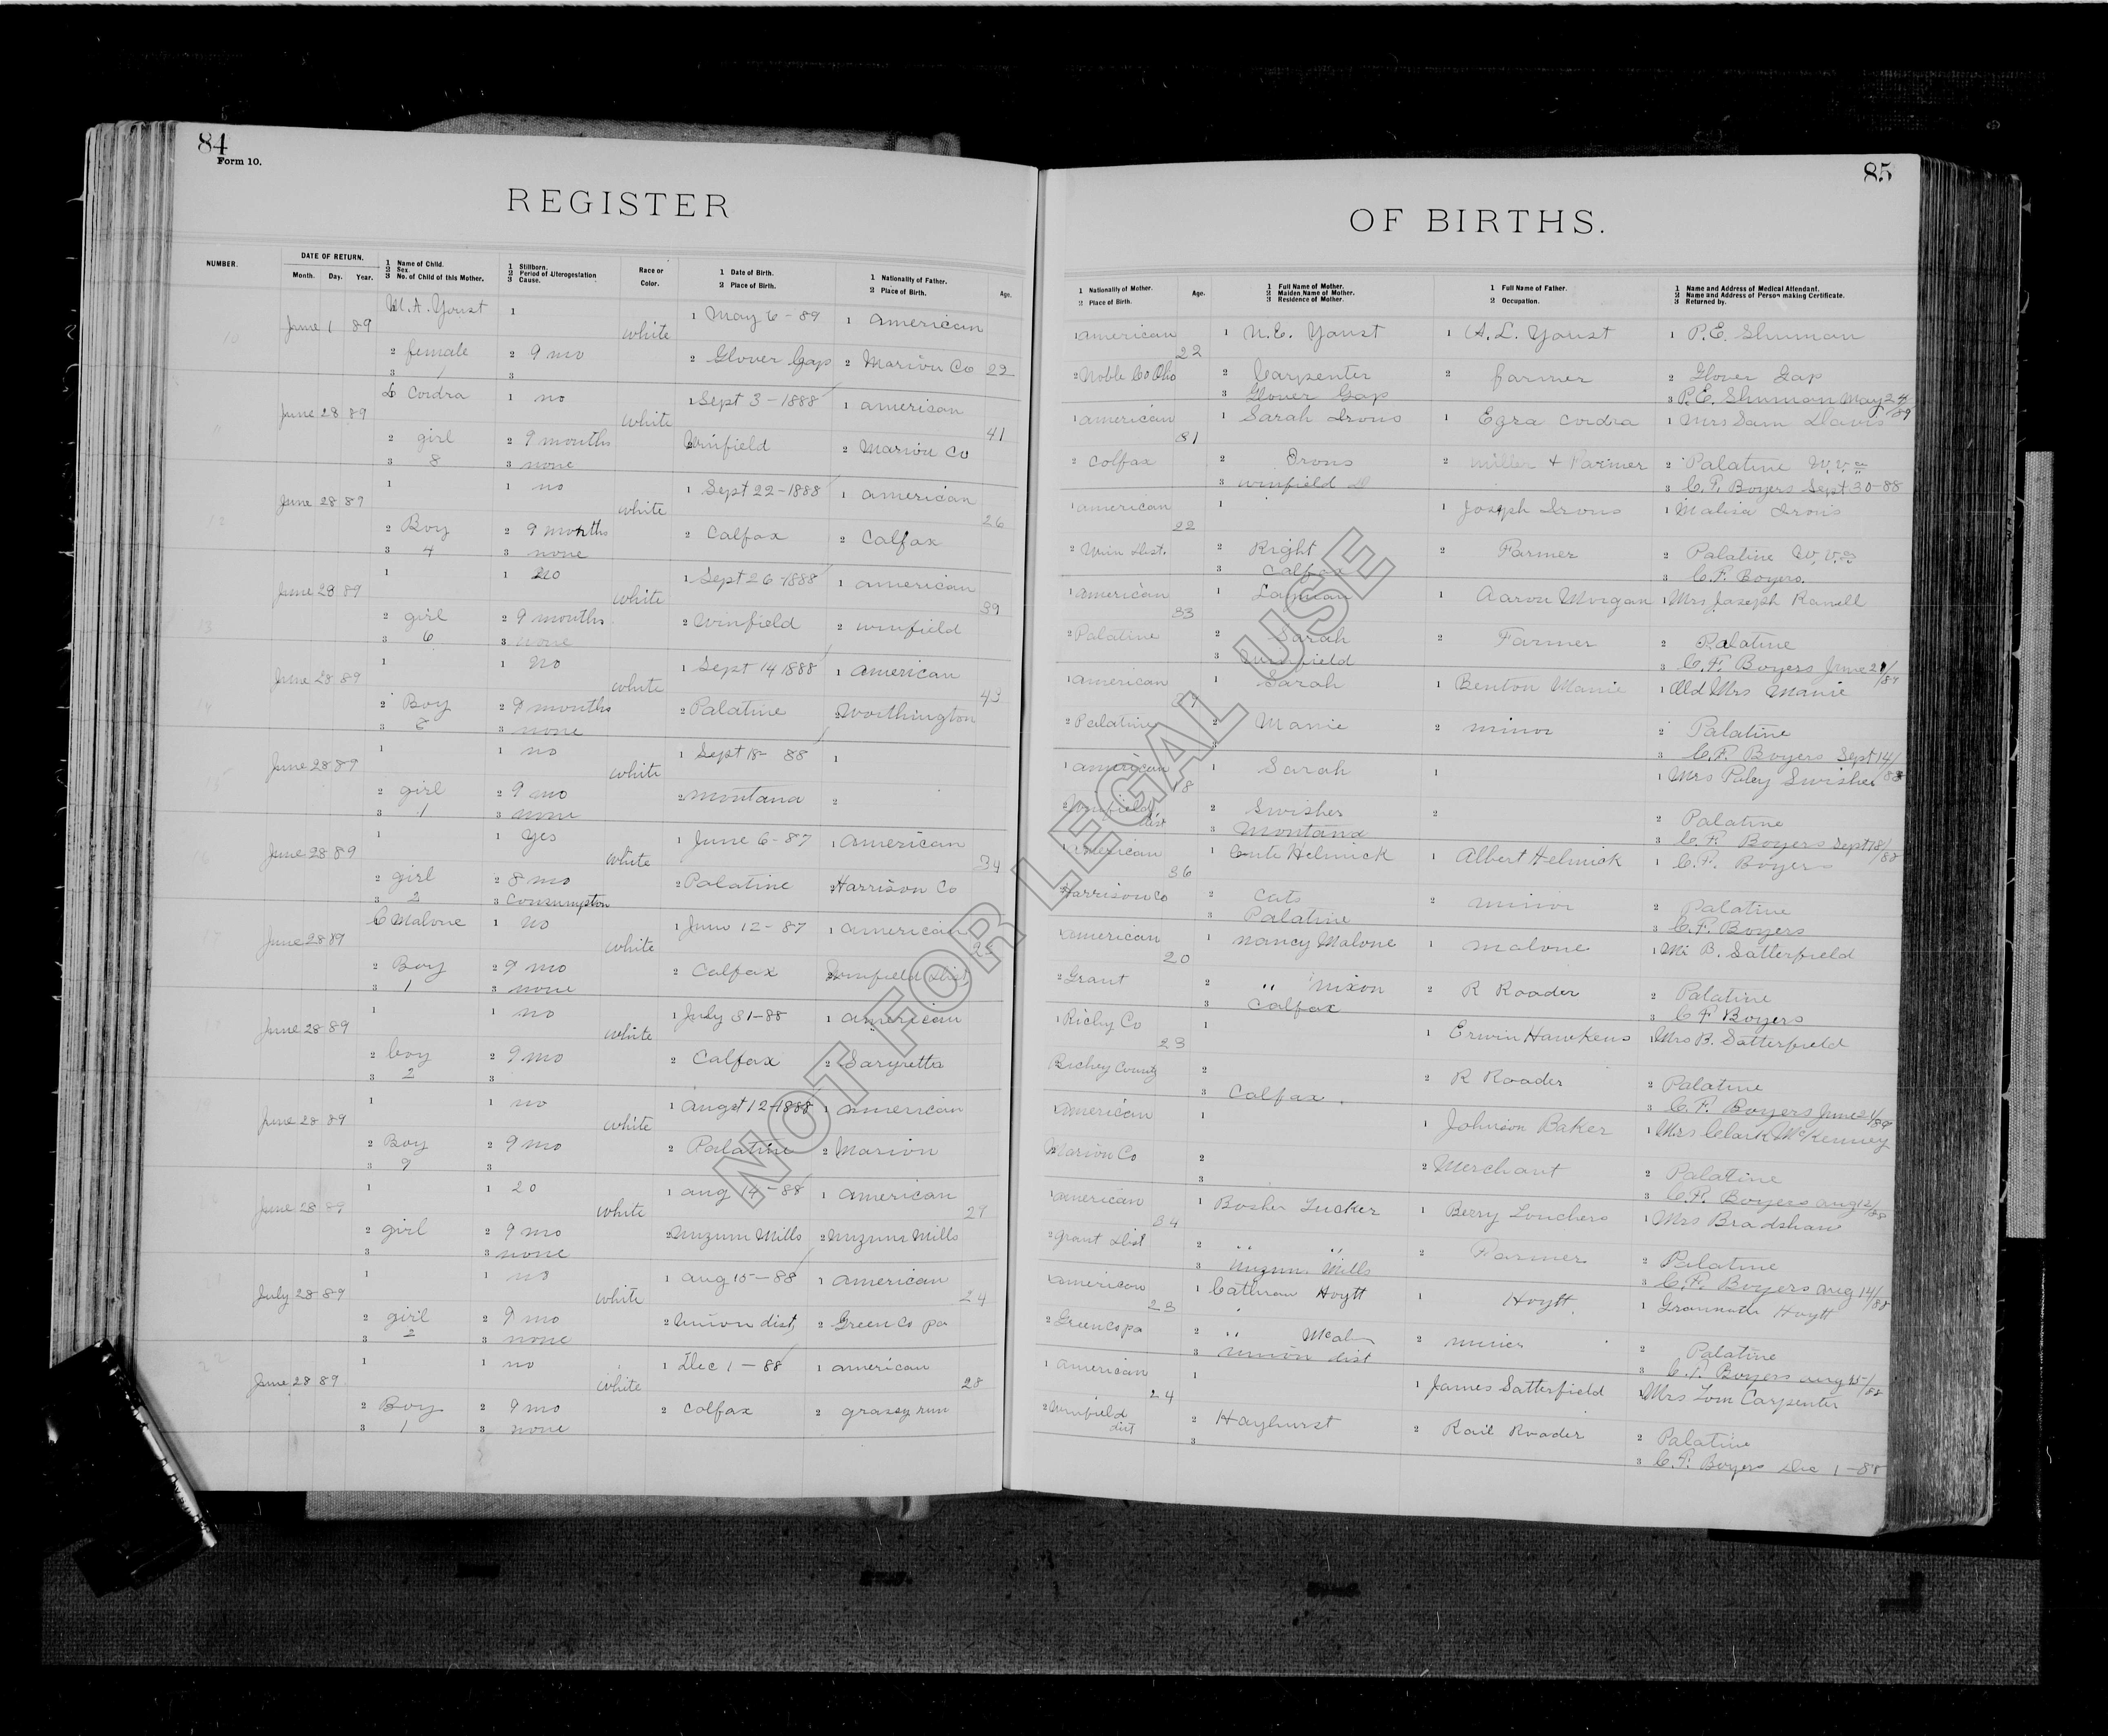 84
Form 10.
REGISTER
NUMBER.
DATE OF RETURN.
Month. Day. Year.
1 Name of Child.
2 Sex.
3 No. of Child of this Mother.
1 Stillborn.
2 Period of Uterogestation
3 Cause.
Race or
Color.
1 Date of Birth.
2 Place of Birth.
1 Nationality of Father.
2 Place of Birth.
Age.
M. A. Youst 1
June 1 89 white 1 May 6 - 89 1 American
2 female 2 9 mo 2 Glover Gap 2 Marion Co 22
3 1 3
Cordra 1 no
June 28 89 white 1 Sept 3 - 1888 1 american
41
2 girl 2 9 months Winfield 2 Marion Co
3 8 3 none
1 1 no 1 Sept 22 - 1888 1 american
June 28 89 white
26
2 Boy 2 9 months 2 Calfax 2 Calfax
3 4 3 none
1 1 no 1 Sept 26 - 1888 1 american
June 28 89 white
39
2 girl 2 9 months 2 Winfield 2 winfield
3 6 3 none
1 1 no 1 Sept 14 1888 1 american
June 28 89 white
43
2 Boy 2 9 months 2 Palatine 2 Worthington
3 3 none
1 1 no 1 Sept 18 - 88 1
June 28 89 white
2 girl 2 9 mo 2 montana 2
3 1 3 none
1 1 yes 1 June 6 - 87 1 American
June 28 89 white
34
2 girl 2 8 mo 2 Palatine 2 Harrison Co
3 2 3 Consumption
C Malone 1 no 1 June 12 - 87 1 american
June 28 89 white
2 Boy 2 9 mo 2 Calfax Winfield Dist
3 1 3 none
1 1 no 1 July 31 - 88 1 american
June 28 89 white
2 boy 2 9 mo 2 Calfax 2
3 2 3
1 1 no 1 Augst 12 - 1888 1 american
June 28 89 white
2 Boy 2 9 mo 2 Palatine 2 Marion
3 9 3
1 1 20 1 aug 14 - 88 1 american
June 28 89 white
2 girl 2 9 mo 2 nuzum Mills 2 nuzum Mills
3 3 none
1 1 no 1 aug 15 - 88 1 american
July 28 89 white
24
2 girl 2 9 mo 2 Union dist 2 Green Co pa
3 2 3 none
1 1 no 1 Dec 1 - 88 1 american
June 28 89 white
28
2 Boy 2 9 mo 2 Colfax 2 grasey run
3 1 3 none
85
OF BIRTHS.
1 Nationality of Mother.
2 Place of Birth.
Age.
1 Full Name of Mother.
2 Maiden Name of Mother.
3 Residence of Mother.
1 Full Name of Father.
2 Occupation.
1 Name and Address of Medical Attendant.
2 Name and Address of Person making Certificate.
3 Returned by.
1 american 1 N. E. Youst 1 A. L. Youst 1 P. E. Shuman
22
2 Noble Co Oho 2 Carpenter 2 farmer 2 Glover Gap
3 Glover Gap 3 P. E. Shuman May 24/89
1 american 1 Sarah Irons 1 Egra Cordra 1 Mrs Sam Davis
31
2 Colfax 2 Irons 2 miller & Farmer 2 Palatine W. Va
3 winfield D 3 C. F. Boyers Sept 30 - 88
1 american 1 1 Joseph Irons 1 Malisa Irons
22
2 Win Dist. 2 Right 2 Farmer 2 Palatine W. Va
3 Calfax 3 C. F. Boyers.
1 american 1 1 Aaron Morgan 1 Mrs Joseph
33
2 Palatine 2 Sarah 2 Farmer 2 Palatine
3 Winfield 3 C. F. Boyers June 21/89
1 american 1 Sarah 1 Benton Manie 1 Old Mrs Manie
2 Palatine 2 Manie 2 minor 2 Palatine
3 3 C. F. Boyers Sept 14/88
1 american 1 Sarah 1 1 Mrs Swisher
18
2 Winfield dist 2 Swisher 2 2 Palatine
3 Montana 3 C. F. Boyers Sept 18/88
1 american 1 Helmick 1 Albert Helmick 1 C. F. Boyers
36
Harrison Co 2 Cats 2 minor 2 Palatine
3 Palatine 3 C. F. Boyers
american 1 Nancy Malone 1 malone 1 B. Satterfield
20
2 Grant 2 " Nixon 2 R Roader 2 Palatine
3 Calfax 3 C F Boyers
1 Richy Co 1 1 Erwin Hawkens 1 Mrs B. Satterfield
23
Richey County 2 2 R Roader 2 Palatine
3 Calfax. 3 C. F. Boyers June 21/89
american 1 1 Johnson Baker 1 Mrs Clark McKenney
Marion Co 2 2 Merchant 2 Palatine
3 3 C. F. Boyers aug 12/88
1 american 1 Tucker 1 Berry 1 Mrs Bradshaw
34
2 grant Dist 2 " " 2 Farmer 2 Palatine
3 nuzum Mills 3 C. F. Boyers aug 14/88
1 american 1 Hoytt 1 Hoytt 1 Hoytt
23
2 Green co pa 2 " 2 minier 2 Palatine
3 Union dist 3 C. F. Boyers aug 15/88
1 american 1 1 James Satterfield 1 Mrs Tom Carpenter
24
2 Winfield dist 2 Hayhurst 2 Rail Roader 2 Palatine
3 3 C. F. Boyers Dec 1 - 88
NOT FOR LEGAL USE